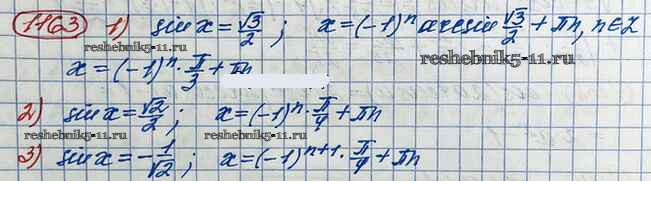 1163 1) sin x = √3/2 ; x = (-1)ⁿ arcsin √3/2 + πn, n∈Z
reshebnik5-11.ru reshebnik5-11.ru
x = (-1)ⁿ · π/3 + πn
2) sin x = √2/2 ; x = (-1)ⁿ · π/4 + πn
reshebnik5-11.ru reshebnik5-11.ru
3) sin x = -1/√2 ; x = (-1)ⁿ⁺¹ · π/4 + πn